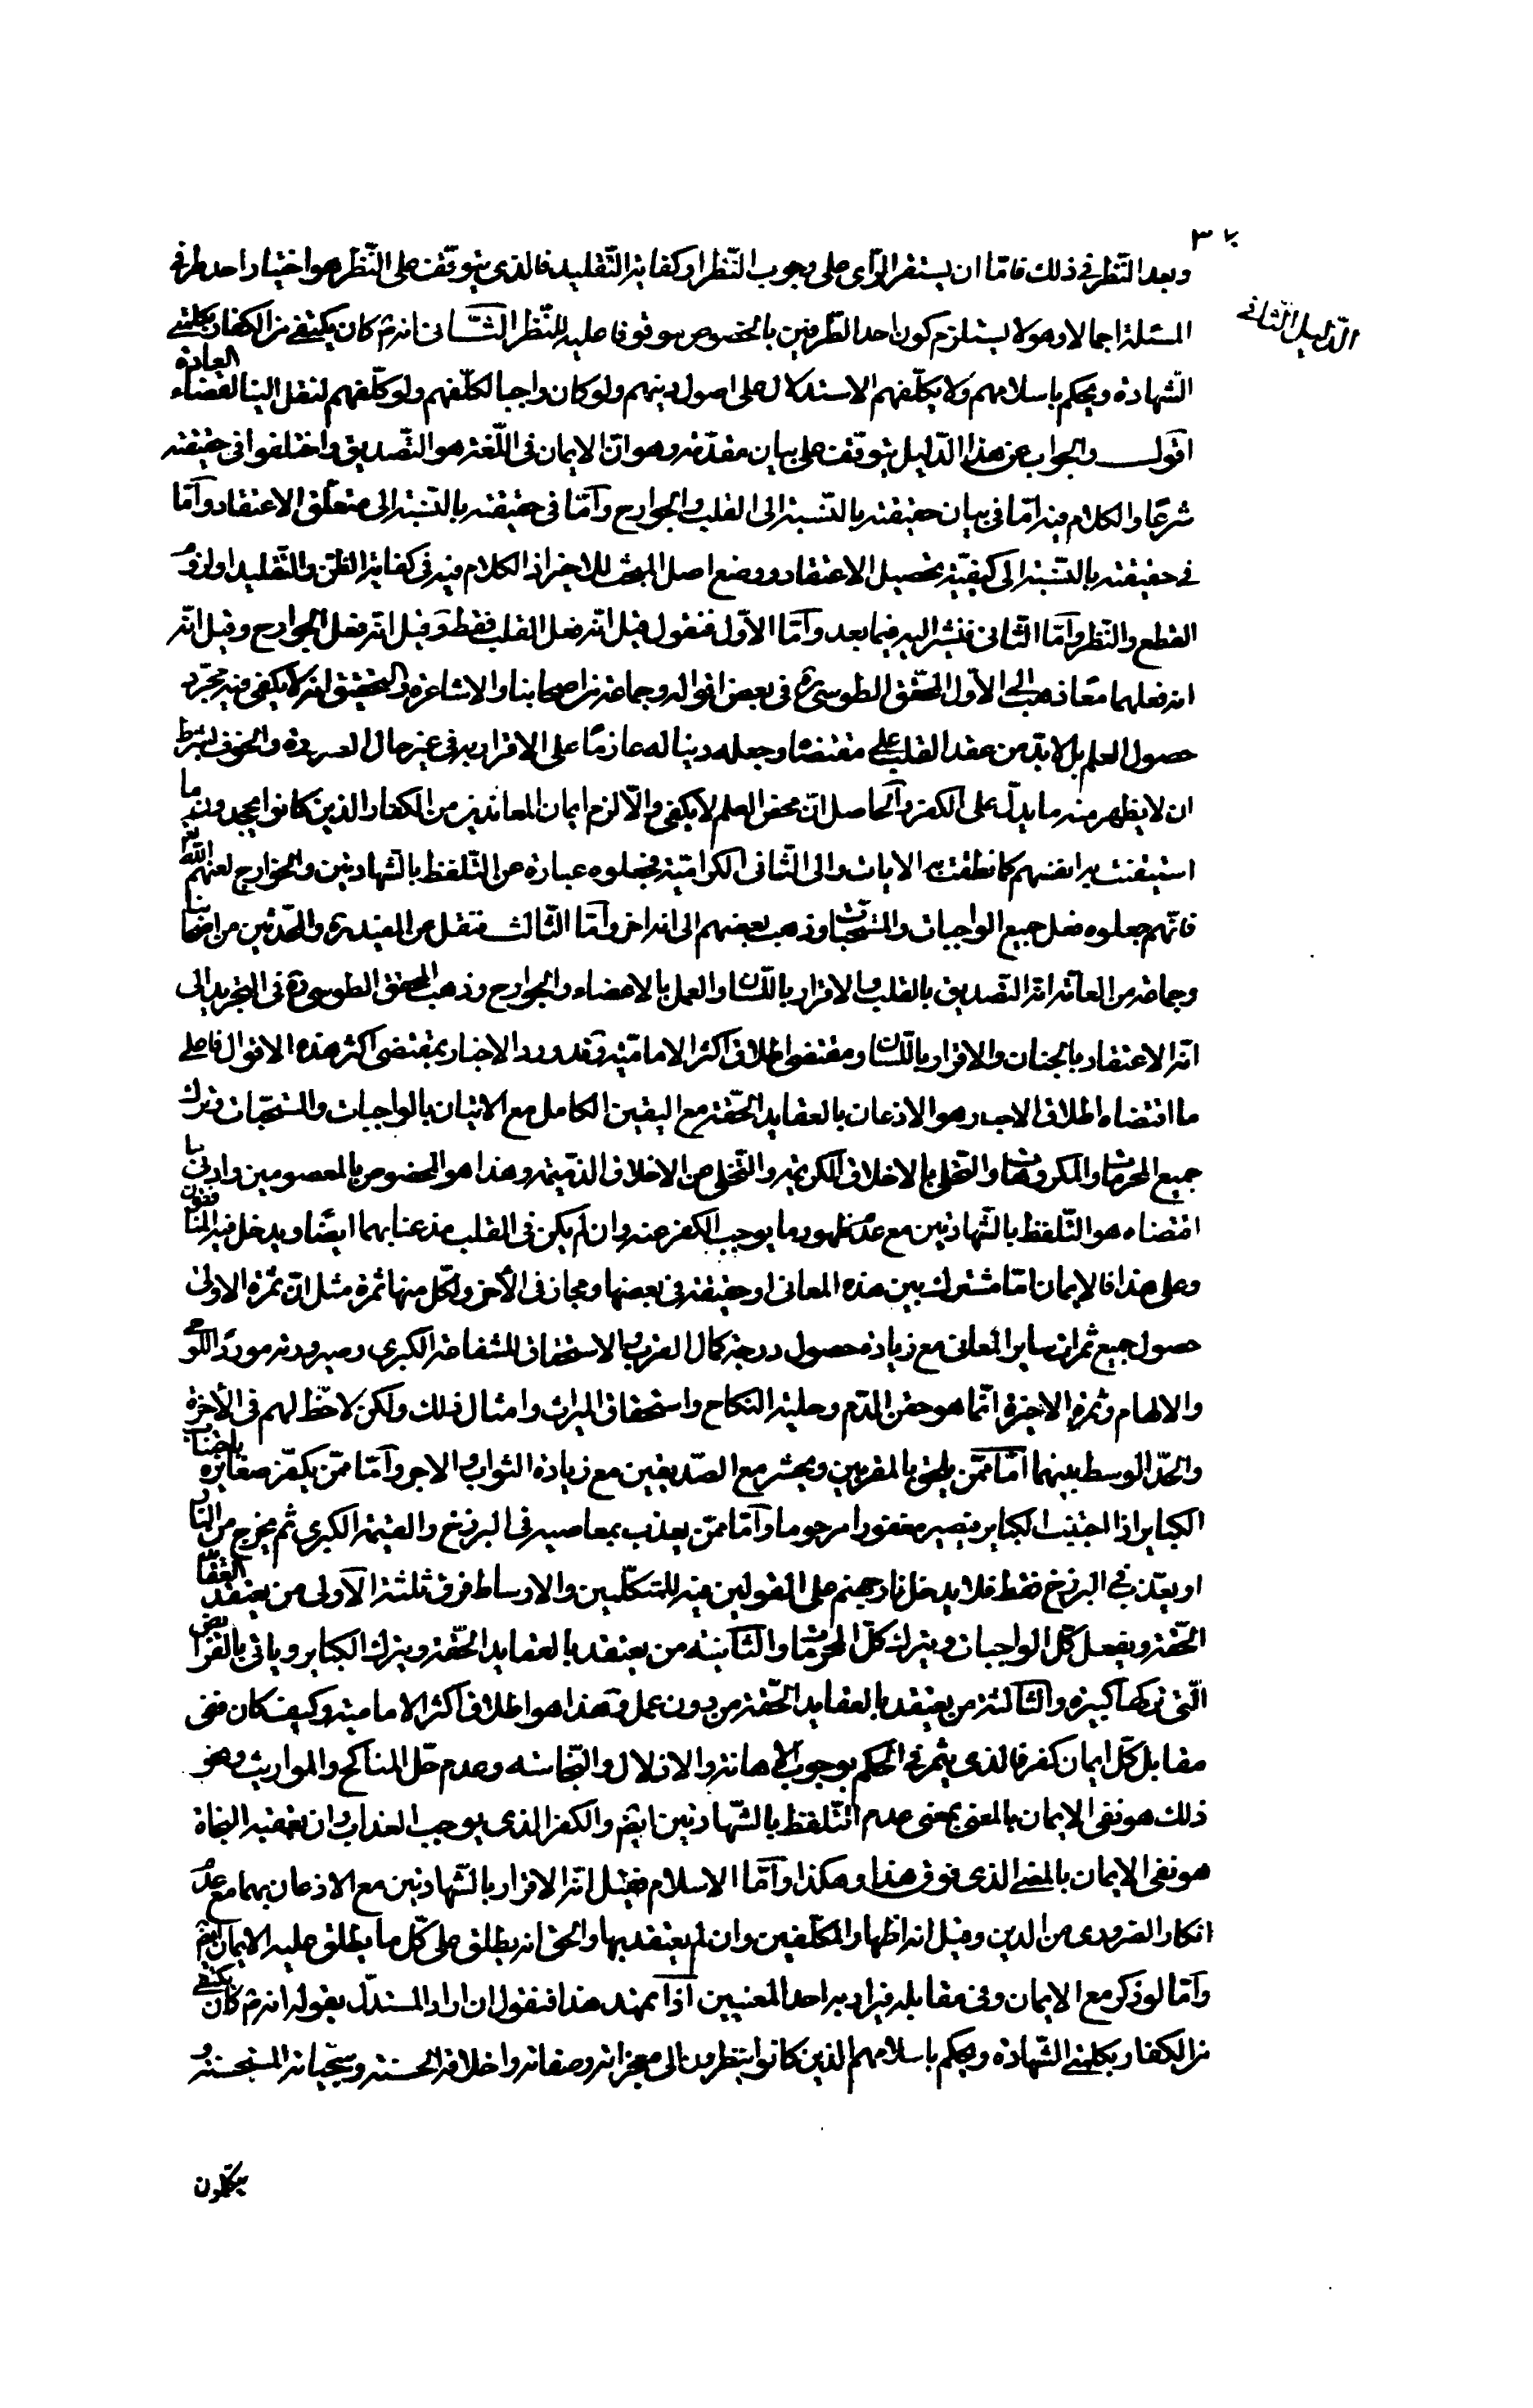 وبعد النّظر في ذلك فامّا ان يستقر الرّاى على وجوب النّظر او كفاية التّقليد فالذى يتوقّف على النّظر هو اختيار احد طرفى
الدّليل الثّانى
المسئلة اجمالا وهو لا يستلزم كون احد الطّرفين بالخصوص موقوفا عليه للنّظر الثّانى انه ص كان يكتفى من الكفار بكلمتى
الشّهادة ويحكم باسلامهم ولا يكلّفهم الاستدلال على اصول دينهم ولو كان واجبا لكلّفهم ولو كلّفهم لنقل الينا لقضاء العادة
اقول والجواب عن هذا الدّليل يتوقّف على بيان مقدّمة وهو انّ الايمان فى اللّغة هو التّصديق واختلفوا فى حقيقته
شرعًا والكلام فيه امّا فى بيان حقيقته بالنّسبة الى القلب والجوارح وامّا فى حقيقته بالنّسبة الى متعلّق الاعتقاد وامّا
فى حقيقته بالنّسبة الى كيفيّة تحصيل الاعتقاد ووضع اصل المبحث للاخير اذ الكلام فيه فى كفاية الظّنّ والتّقليد او لزوم
القطع والنّظر وامّا الثّانى فنشير اليه فيما بعد وامّا الاوّل فنقول قيل انّه فعل القلب فقط وقيل انّه فعل الجوارح وقيل انّه
انه فعلهما معًا ذهب الى الاوّل المحقّق الطوسىّ ره فى بعض اقواله وجماعة من اصحابنا والاشاعرة والتحقيق انه لا يكفى فيه مجرّد
حصول العلم بل لابدّ من عقد القلب على مقتضاه وجعله دينا له عازمًا على الاقرار به فى غير حال الضرورة والخوف بشرط
ان لا يظهر منه ما يدلّ على الكفر والحاصل انّ محض العلم لا يكفى والّا لزم ايمان المعاندين من الكفار الذين كانوا يجحدون ما
استيقنت به انفسهم كما نطقت به الايات والى الثّانى الكراميّة فجعلوه عبارة عن التّلفّظ بالشّهادتين والخوارج لعنهم الله
فانّهم جعلوه فعل جميع الواجبات والمستحبّات وذهب بعضهم الى اخر وامّا الثّالث فنقل عن المفيد ره والمحدّثين من اصحابنا
وجماعة من العامّة انّه التّصديق بالقلب والاقرار باللّسان والعمل بالاعضاء والجوارح وذهب المحقّق الطوسى ره فى التجريد الى
انّه الاعتقاد بالجنان والاقرار باللّسان ومقتضى اطلاق اكثر الاماميّة وقد ورد الاخبار بمقتضى اكثر هذه الاقوال فاعلى
ما اقتضاه اطلاق الاخبار هو الاذعان بالعقايد الحقّة مع اليقين الكامل مع الاتيان بالواجبات والمستحبّات وترك
جميع المحرمات والمكروهات والتّحلى بالاخلاق الكريمة والتّخلى عن الاخلاق الذّميمة وهذا هو المخصوص بالمعصومين وادنى ما
اقتضاه هو التّلفّظ بالشّهادتين مع عدم ظهور ما يوجب الكفر عنه وان لم يكن فى القلب مذعنا بهما ايضًا ويدخل فيه المنافقون
وعلى هذا فالايمان امّا مشترك بين هذه المعانى او حقيقة فى بعضها ومجاز فى الاخر ولكلّ منها ثمرة مثل انّ ثمرة الاولى
حصول جميع ثمرات ساير المعانى مع زيادة حصول درجة كمال القرب والاستحقاق للشفاعة الكبرى وصيرورته موردًا للوحى
والالهام وثمرة الاخيرة انّما هو حقن الدّم وحلية النكاح واستحقاق الميراث وامثال ذلك ولكن لا حظّ لهم فى الآخرة
والحدّ الوسط بينهما امّا ممّن يلحق بالمقربين ويحشر مع الصّدّيقين مع زيادة الثواب والاجر وامّا ممّن يكفّر صغايره باجتناب
الكباير اذا اجتنب الكباير فيصير مغفورا مرحوما وامّا ممّن يعذب بمعاصيه فى البرزخ والقيمة الكبرى ثم يخرج من النار
او يعذب فى البرزخ فقط فلا يدخل نار جهنم على القولين فيه للمتكلّمين والاوساط فرق ثلثة الاولى من يعتقد العقايد
الحقّة ويفعل كلّ الواجبات ويترك كلّ المحرمات والثّانية من يعتقد بالعقايد الحقّة ويترك الكباير وياتى بالفرايض
الّتى تركها كبيرة والثّالثة من يعتقد بالعقايد الحقّة من دون عمل وهذا هو اطلاق اكثر الاماميّة وكيف كان ففى
مقابل كلّ ايمان كفر فالذى يثمر فى الحكم بوجوب الاهانة والاذلال والنّجاسة وعدم حلّ المناكح والمواريث ونحو
ذلك هو نفى الايمان بالمعنى بمعنى عدم التّلفّظ بالشّهادتين ايضا والكفر الذى يوجب العذاب وان تعقبه النجاة
هو نفى الايمان بالمعنى الذى فوق هذا وهكذا وامّا الاسلام فقيل انّه الاقرار بالشّهادتين مع الاذعان بهما مع عدم
انكار الضرورى من الدين وقيل انه اظهار المكلّفين وان لم يعتقد بها والحق انه يطلق على كلّ ما يطلق عليه الايمان ايضا
وامّا لو ذكر مع الايمان وفى مقابله فيراد به احد المعنيين اذا تمهّد هذا فنقول ان اراد المستدلّ بقوله انه ص كان يكتفى
من الكفار بكلمتى الشّهادة ويحكم باسلامهم الذين كانوا ينتظرون الى معجزاته وصفاته واخلاقه الحسنة وسجيّاته المستحسنة و
يتكلّمون